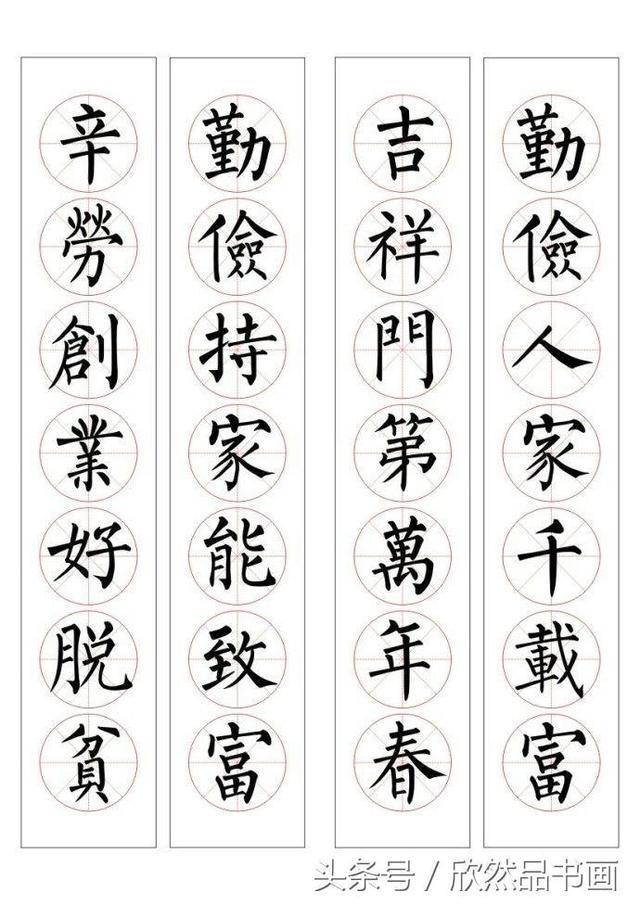 勤儉人家千載富
吉祥門第萬年春
勤儉持家能致富
辛勞創業好脱貧
头条号 / 欣然品书画